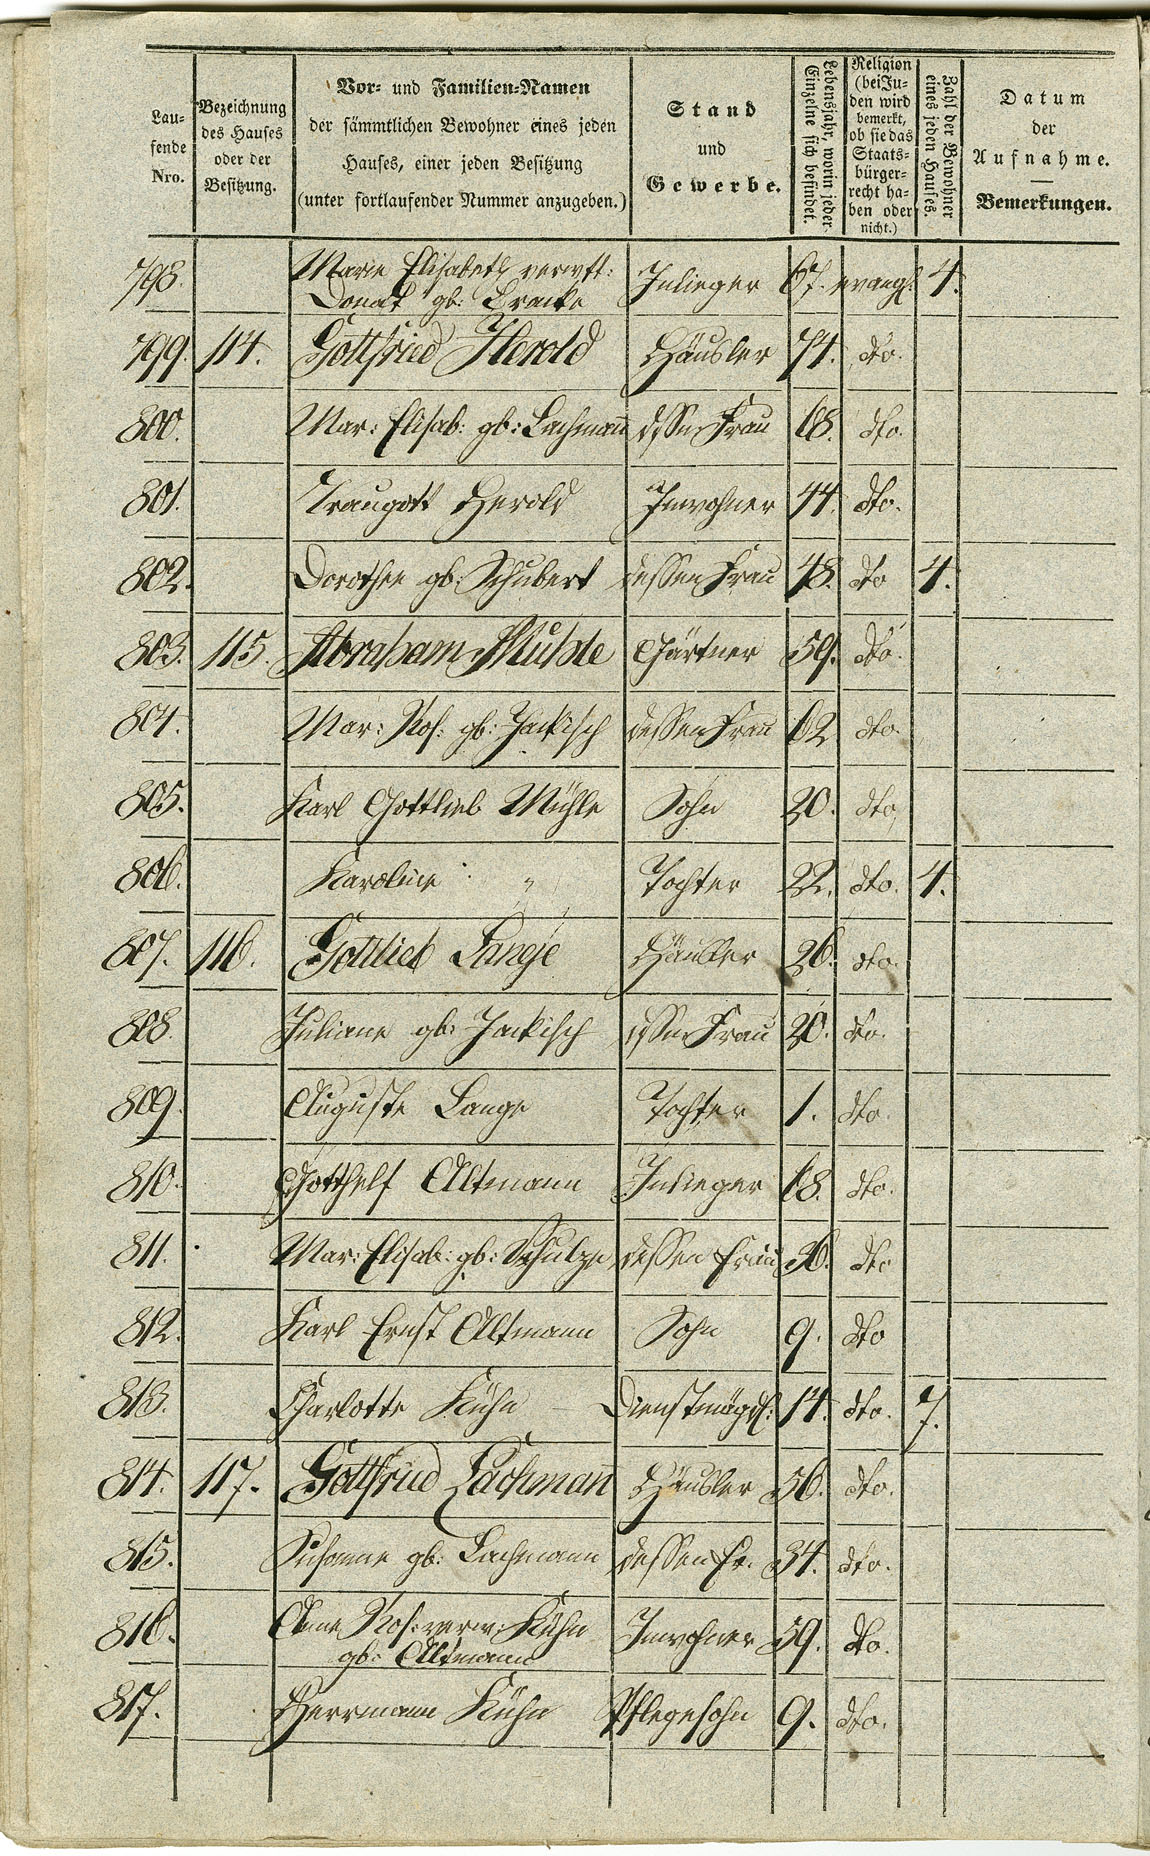 Lau-
fende
Nro.
Bezeichnung
des Hauses
oder der
Besitzung.
Vor- und Familien-Namen
der sämmtlichen Bewohner eines jeden
Hauses, einer jeden Besitzung
(unter fortlaufender Nummer anzugeben.)
Stand
und
Gewerbe.
Lebensjahr, worin jeder
Einzelne sich befindet.
Religion
(bei Ju-
den wird
bemerkt,
ob sie das
Staats-
bürger-
recht ha-
ben oder
nicht.)
Zahl der Bewohner
eines jeden Hauses.
Datum
der
Aufnahme.
Bemerkungen.
798. Marie Elisabeth verwft: Inlieger 67. evangl. 4.
Donat gb:
799. 114. Gottfried Herold Häusler 74. dto.
800. Mar: Elisab: gb: Lachmann dssn Frau 68. dto.
801. Traugott Herold Inwohner 44. dto.
802. Dorothee gb: Schubert dessen Frau 48. dto 4.
803. 115. Abraham Mühle Gärtner 59. dto.
804. Mar: Ros: gb: Jackisch dessen Frau 62 dto.
805. Karl Gottlieb Mühle Sohn 20. dto,
806. Karoline " Tochter 22. dto. 4.
807. 116. Gottlieb Lange Häusler 26. dto.
808. Juliane gb: Jackisch dssn Frau 20. dto.
809. Auguste Lange Tochter 1. dto.
810. Gotthelf Altmann Inlieger 68. dto.
811. Mar: Elisab: gb: Schulze dessen Frau 36. dto
812. Karl Ernst Altmann Sohn 9. dto
813. Charlotte Kühn – Dienstmägd: 14. dto. 7.
814. 117. Gottfried Lachmann Häusler 36. dto.
815. Susanne gb: Lachmann dessen Fr. 34. dto.
816. Anne Ros: verw: Kühn Inwohner 59. dto.
gb: Altmann
817. Herrmann Kühn Pflegesohn 9. dto.